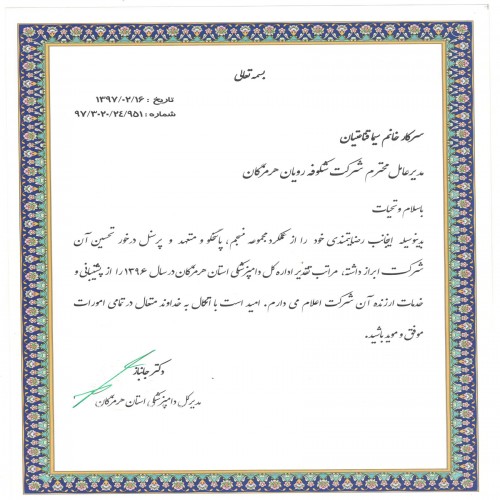 بسمه تعالی
تاریخ : ۱۳۹۷/۰۲/۱۶
شماره : ۹۷/۳۰۲۰/۲۴/۹۵۱
سرکار خانم سیما قناعتیان
مدیرعامل محترم شرکت شکوفه رویان هرمزگان
باسلام و تحیات
بدینوسیله اینجانب رضایتمندی خود را از عملکرد مجموعه منسجم، پاسخگو و متعهد و پرسنل درخور تحسین آن
شرکت ابراز داشته، مراتب تقدیر اداره کل دامپزشکی استان هرمزگان در سال ۱۳۹۶ را از پشتیبانی و
خدمات ارزنده آن شرکت اعلام می دارم. امید است با اتکال به خداوند متعال در تمامی امورات
موفق و موید باشید.
دکتر جانباز
مدیرکل دامپزشکی استان هرمزگان